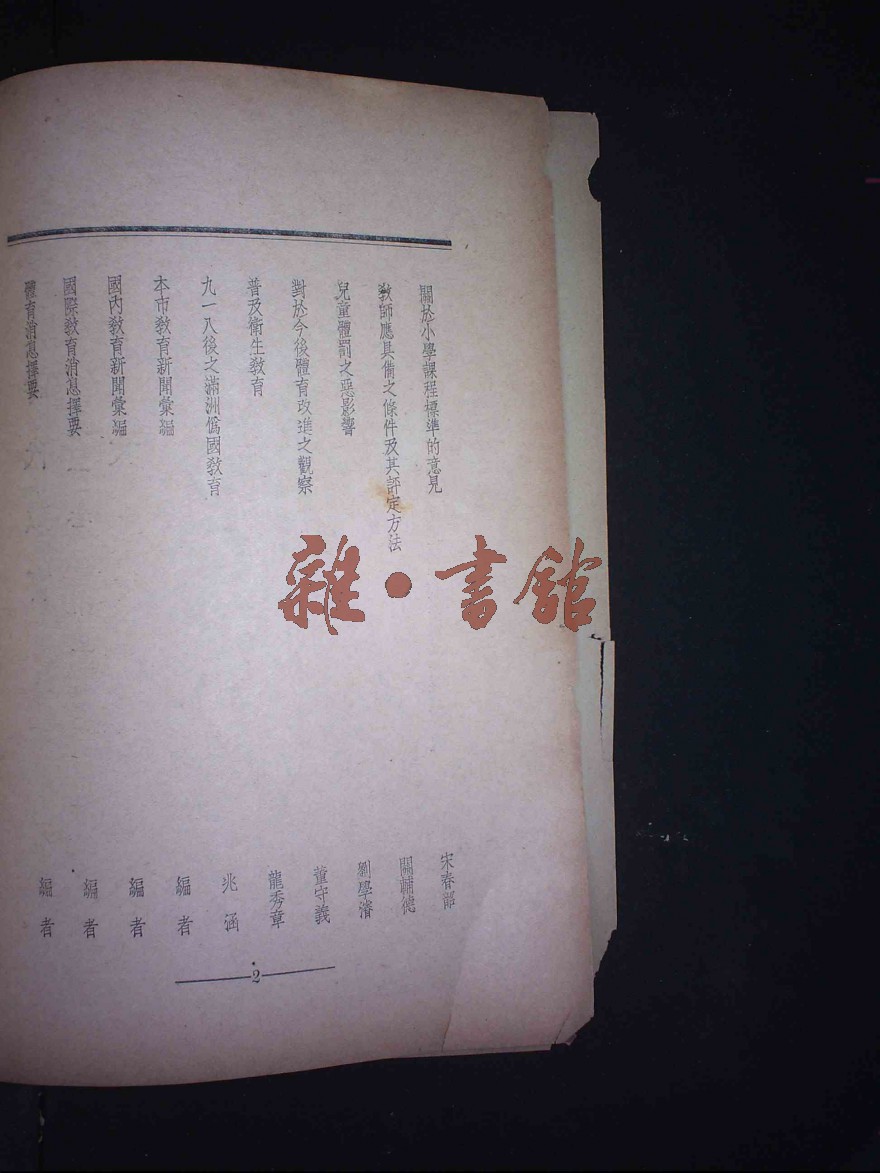 關於小學課程標準的意見
宋春韶
教師應具備之條件及其評定方法
關輔德
兒童體罰之惡影響
劉學濬
對於今後體育改進之觀察
董守義
普及衛生教育
龍秀章
九一八後之滿洲僞國教育
兆涵
本市教育新聞彙編
編者
國內教育新聞彙編
編者
國際教育消息擇要
編者
體育消息擇要
編者
2
雜·書館